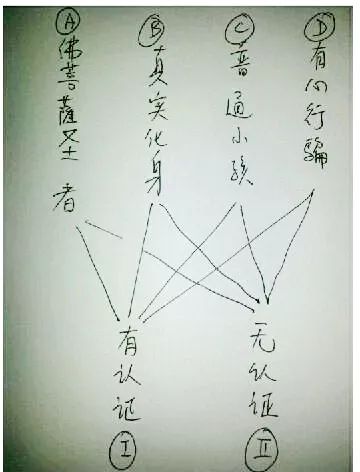 Ⓐ佛菩薩又士者
Ⓑ真实化身
Ⓒ普通小孩
Ⓓ有心行騙
有认证Ⅰ
无认证Ⅱ